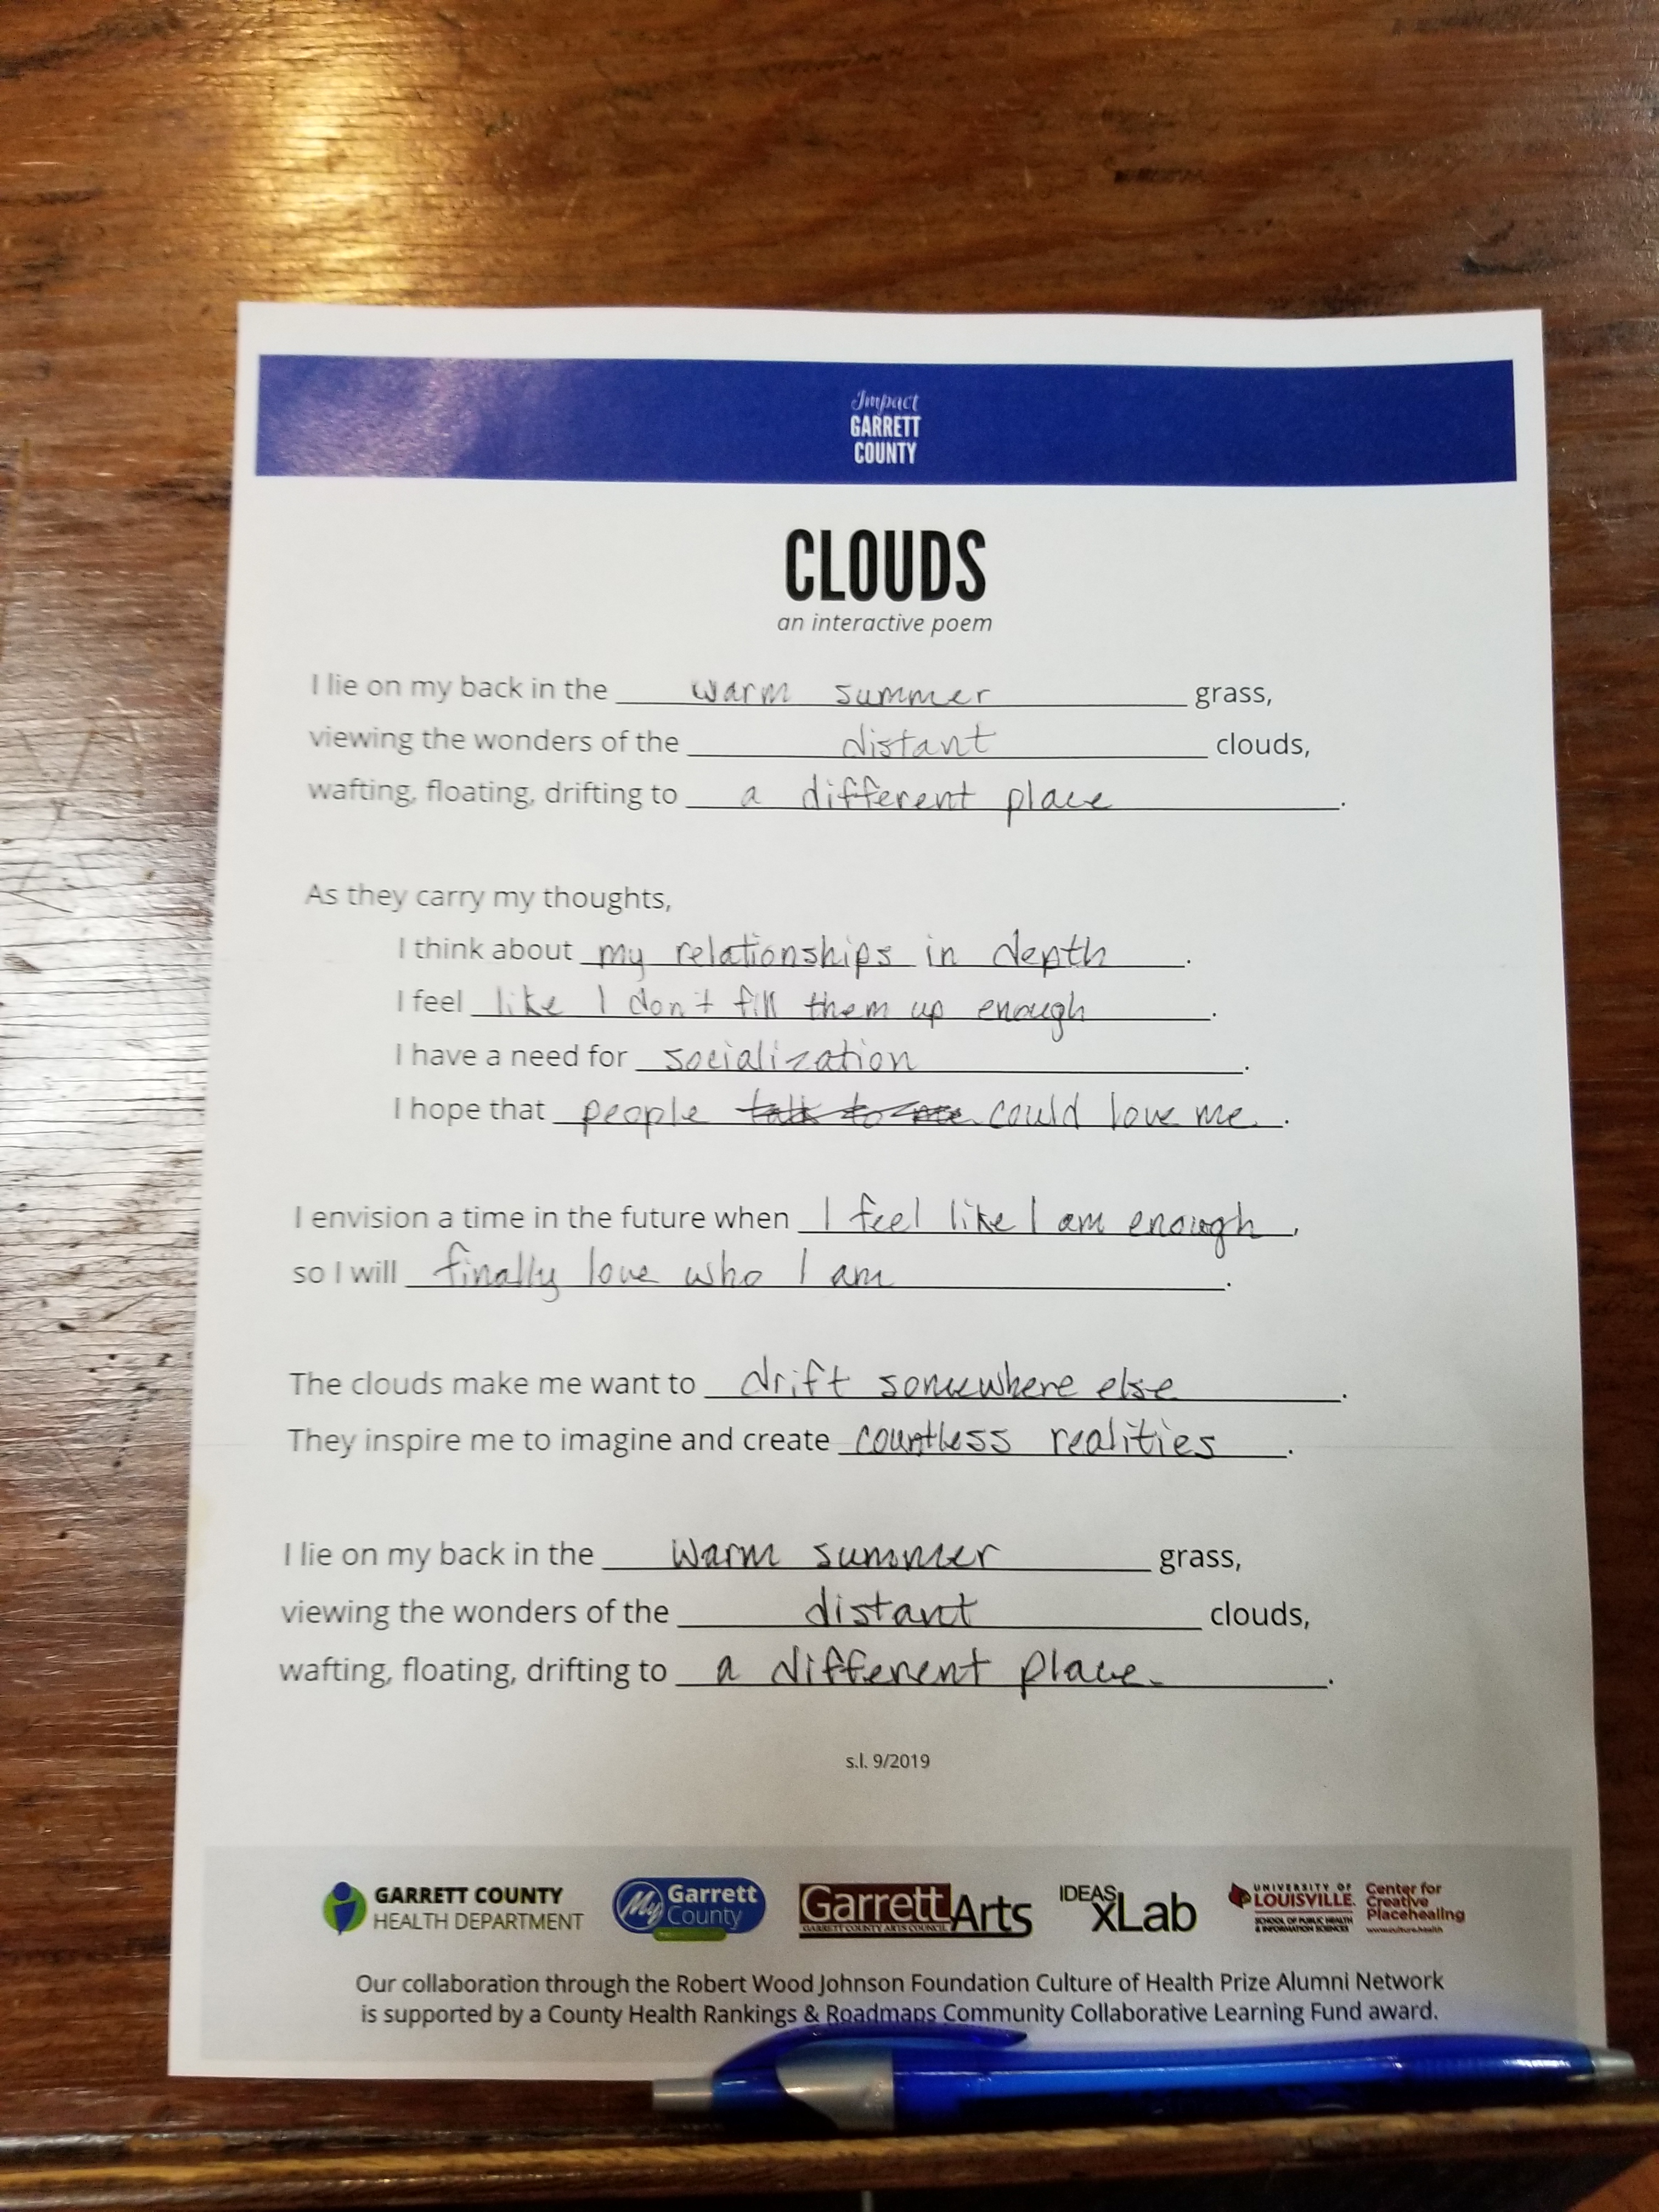 Impact
GARRETT
COUNTY
CLOUDS
an interactive poem
I lie on my back in the warm summer grass,
viewing the wonders of the distant clouds,
wafting, floating, drifting to a different place.
As they carry my thoughts,
I think about my relationships in depth.
I feel like I don't fill them up enough.
I have a need for socialization.
I hope that people talk to me could love me.
I envision a time in the future when I feel like I am enough,
so I will finally love who I am.
The clouds make me want to drift somewhere else.
They inspire me to imagine and create countless realities.
I lie on my back in the warm summer grass,
viewing the wonders of the distant clouds,
wafting, floating, drifting to a different place.
s.l. 9/2019
GARRETT COUNTY
HEALTH DEPARTMENT
My Garrett
County
Garrett Arts
GARRETT COUNTY ARTS COUNCIL
IDEAS
xLab
UNIVERSITY OF
LOUISVILLE.
SCHOOL OF PUBLIC HEALTH
& INFORMATION SCIENCES
Center for
Creative
Placehealing
www.culture.health
Our collaboration through the Robert Wood Johnson Foundation Culture of Health Prize Alumni Network
is supported by a County Health Rankings & Roadmaps Community Collaborative Learning Fund award.